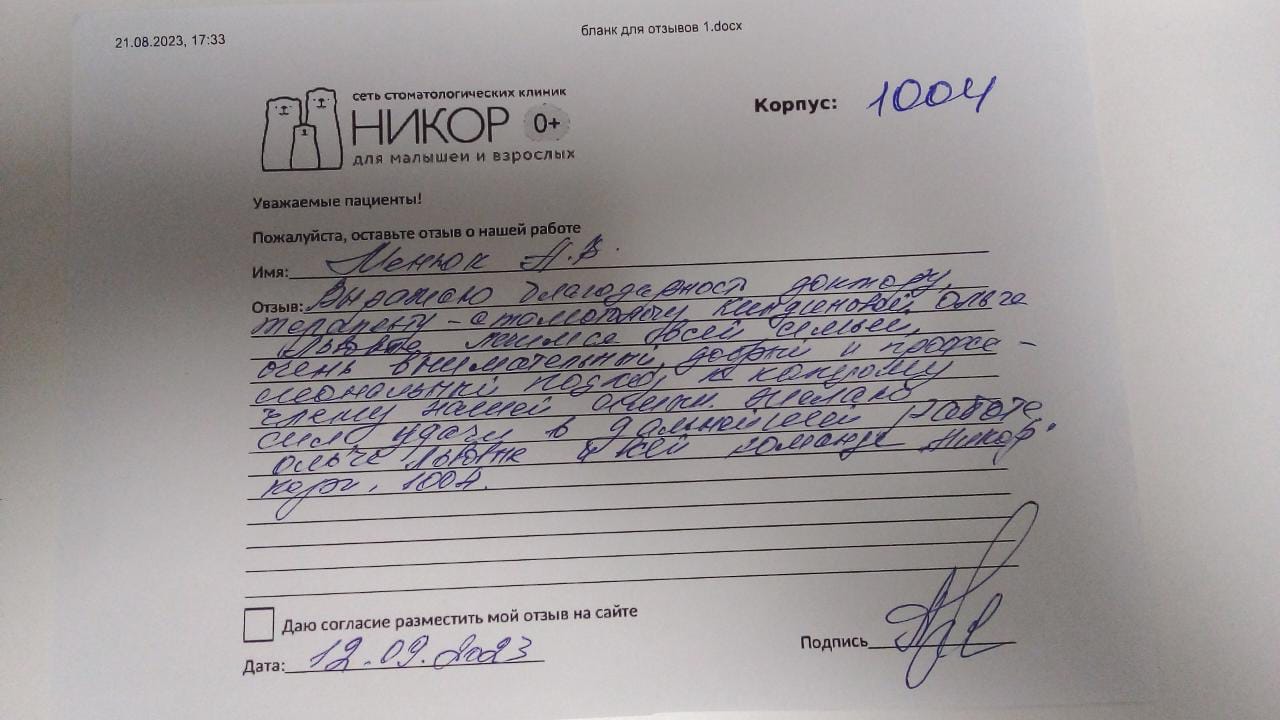 21.08.2023, 17:33
бланк для отзывов 1.docx
сеть стоматологических клиник
НИКОР 0+
для малышей и взрослых
Корпус: 1004
Уважаемые пациенты!
Пожалуйста, оставьте отзыв о нашей работе
Имя: Менюк А.В.
Отзыв: Выражаю благодарность доктору,
терапевту - стоматологу Ольга
Львовне лечимся всей семьей,
очень внимательный, добрый и профес -
сиональный подход к каждому
члену нашей семьи. Желаю
сил удачи в дальнейшей работе
Ольге Львовне и всей команде Никор
корп. 1004.
Даю согласие разместить мой отзыв на сайте
Дата: 12.09.2023
Подпись